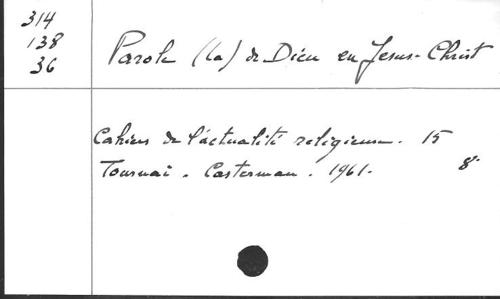 314
138
36
Parole (la) de Dieu en Jesus-Christ
Cahiers de l'actualité religieuse. 15
Tournai. Casterman. 1961.
8°